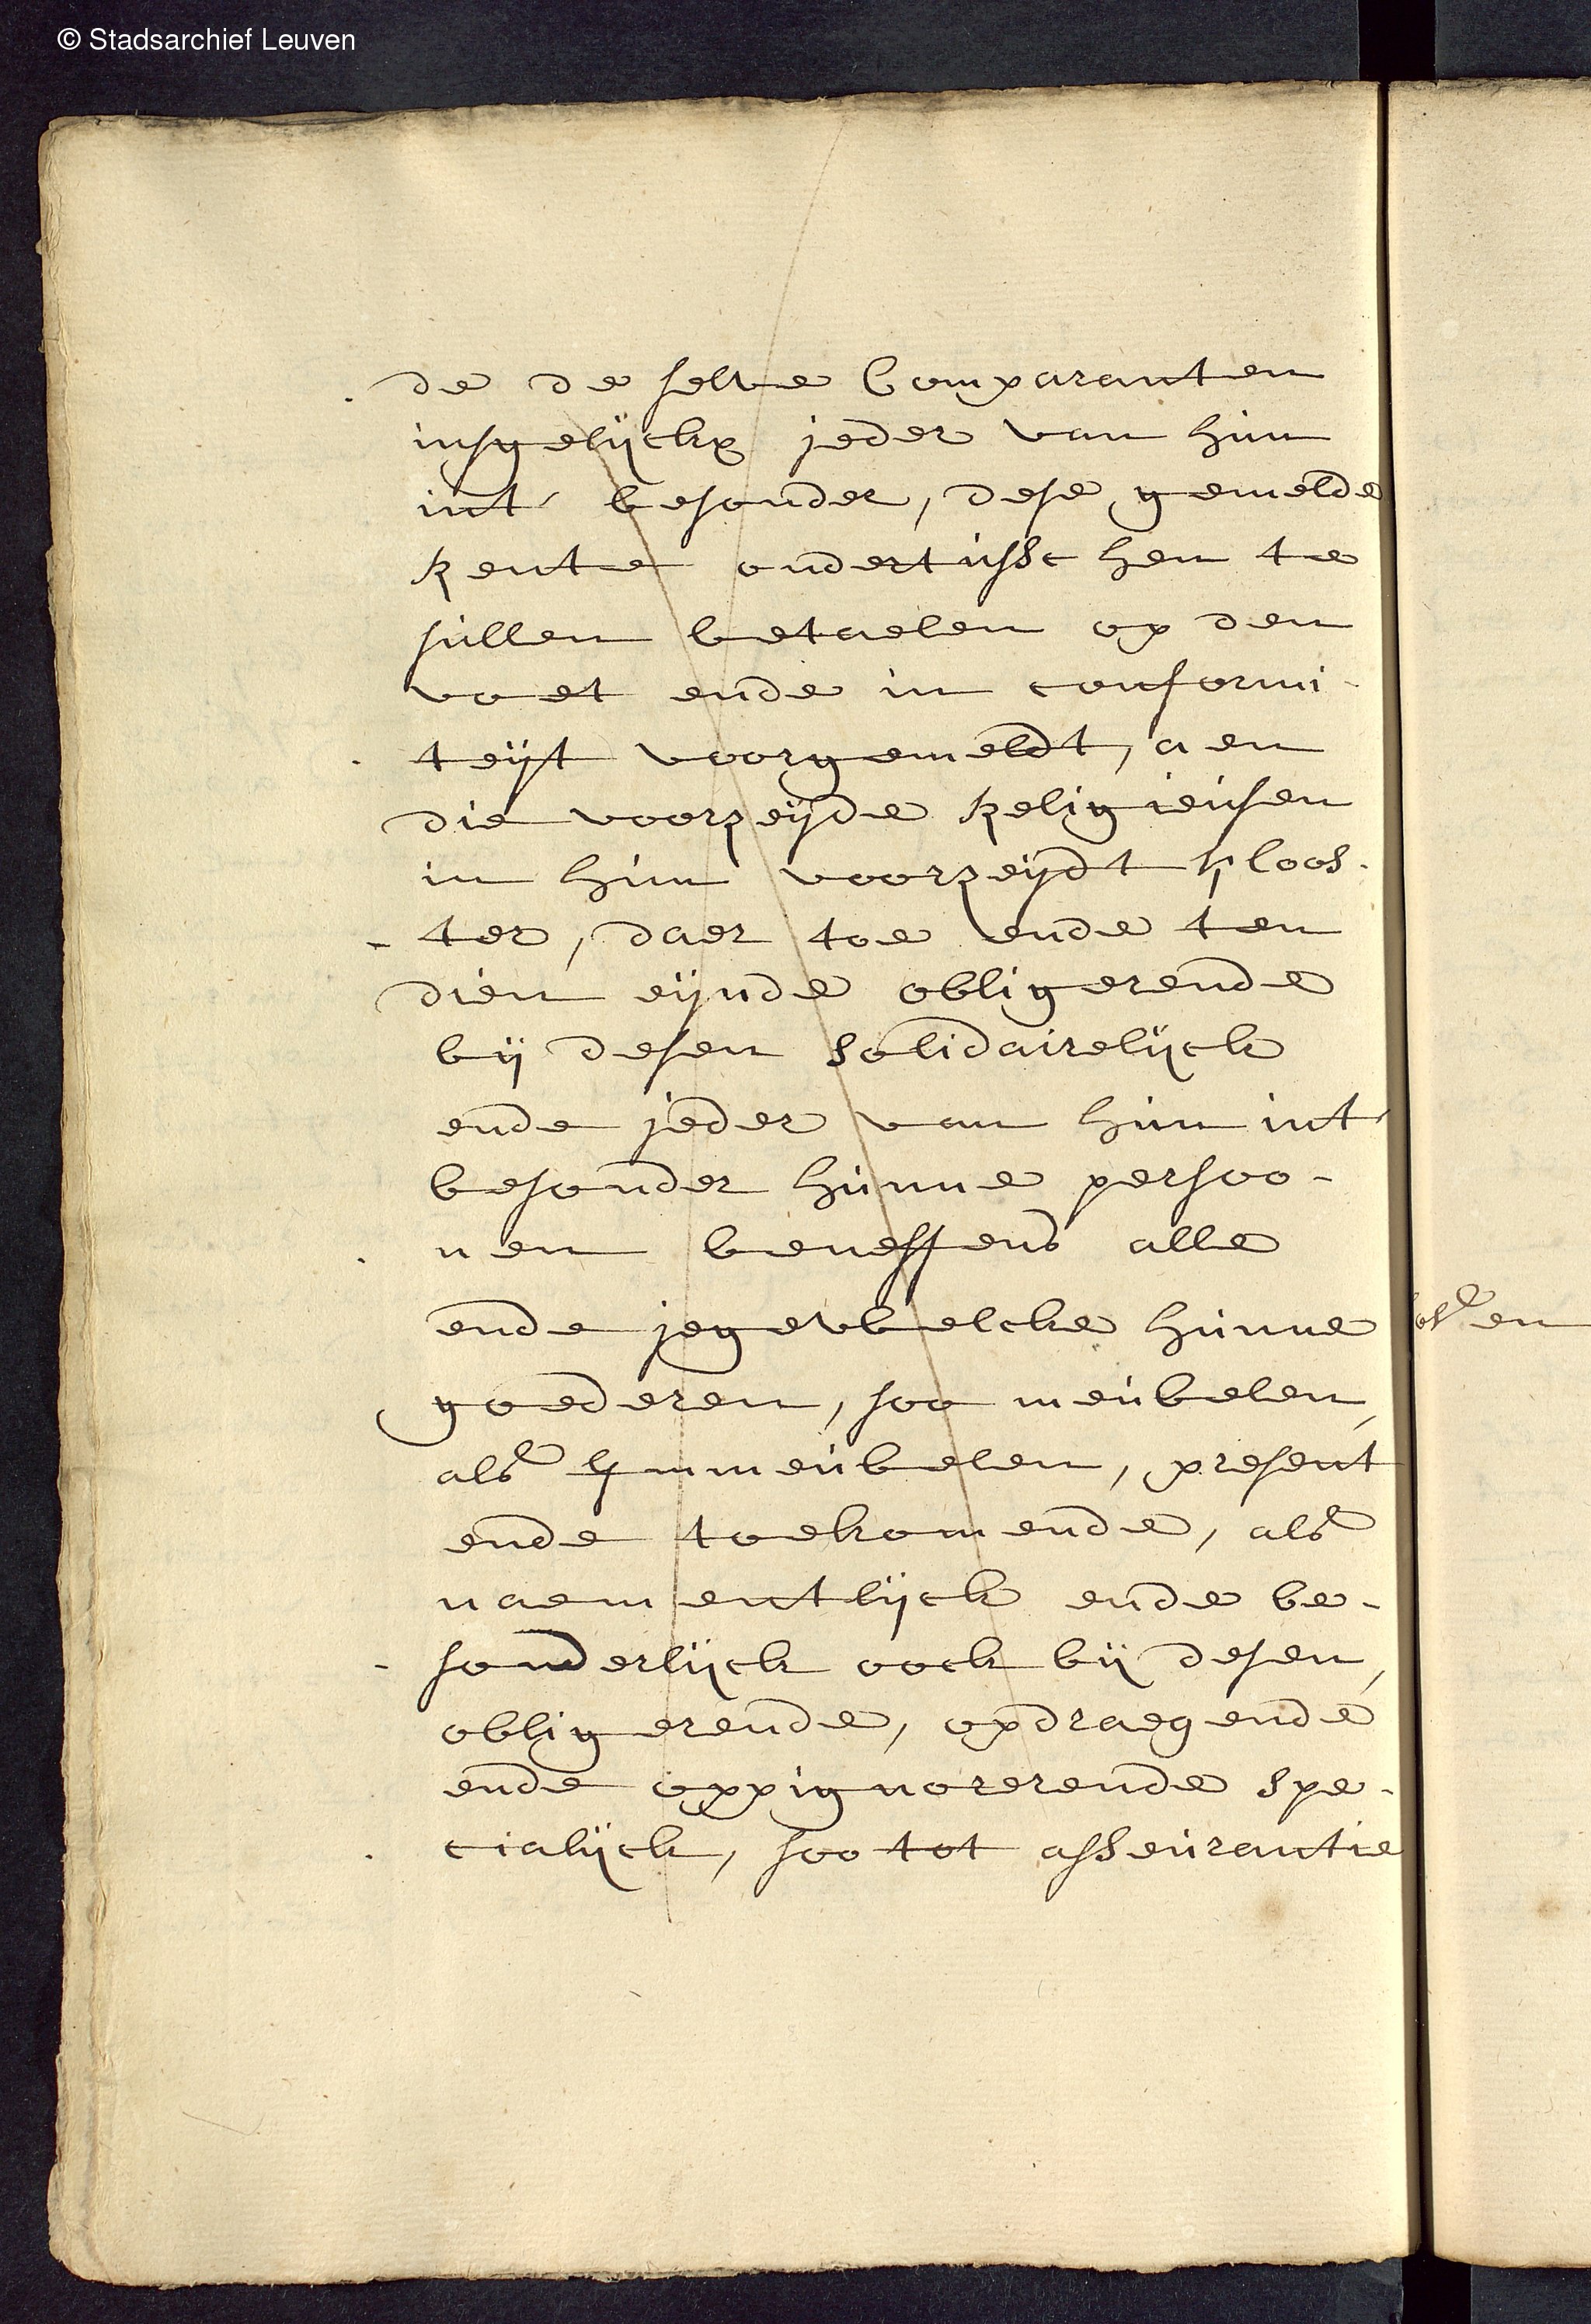 © Stadsarchief Leuven
de de selve Comparanten
insgelijckx jeder van hun
int besonder, dese gemelde
rente ondertusschen te
sullen betaelen op den
voet ende in conformi-
teijt voorgemeldt, aen
die voorzeijde Religieusen
in hun voorzeijdt kloos-
ter, daer toe ende ten
dien eijnde obligerende
bij desen solidairelijck
ende jeder van hun int
besonder hunne persoo-
nen beneffens alle
ende jegewelcke hunne
goederen, soo meubelen,
als Immeubelen, present
ende toekomende, als
naementlijck ende be-
sonderlijck oock bij desen,
obligerende, opdraegende
ende oppignorerende spe-
cialijck, soo tot asseurantie